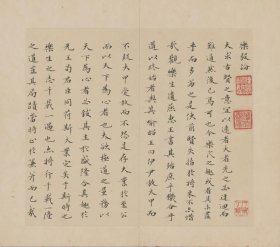 樂毅論
夫求古賢之意宜以遠者大者先之必迂迴而
難通然後已焉可也今樂氏之趣或者其未盡
乎而多劣之是使前賢失指於將來不亦惜
哉觀樂生遺燕惠王書其殆庶乎機合乎
道以終始者與其喻昭王曰伊尹放大甲而
不疑大甲受放而不怨是存大業於至公
而以天下為心者也夫欲極道之量務以
天下為心者必致其主於盛隆合其趣於
先王苟君臣同符斯大業定矣于斯時也
樂生之志千載一遇也亦將行千載一隆
之道豈其局蹟當時止於兼并而已哉